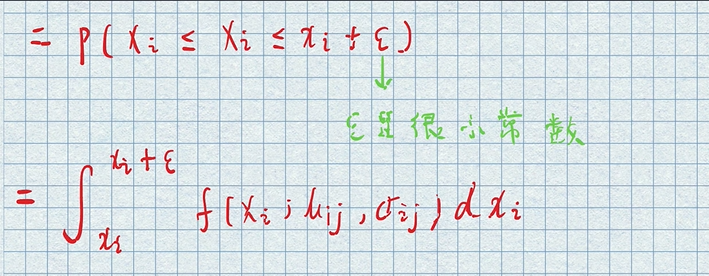 = P(xi ≤ Xi ≤ xi + ε)
ε是很小常数
= ∫_{xi}^{xi+ε} f(xi; μij, σij) dxi